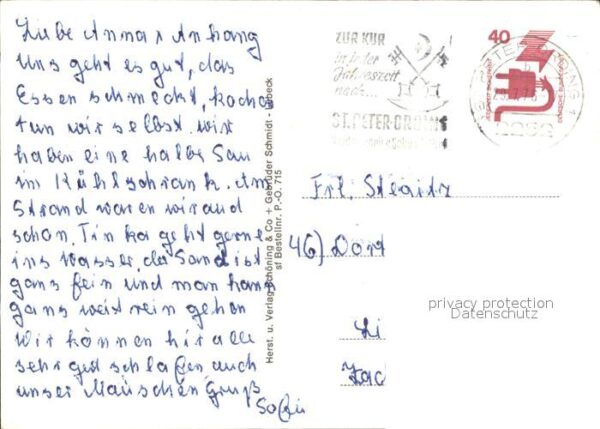 Liebe Anna + Anhang
Uns geht es gut, das
Essen schmeckt, kochen
tun wir selbst. wir
haben eine halbe Sau
im Kühlschrank. Am
Strand waren wir aud
schon. Tinka geht gerne
ins Wasser, der Sand ist
gans fein und man kann
gans weit rein gehen
Wir können hir alle
sehr gut schlafen auch
unser Mäuschen Gruß
Herst. u. Verlag Schöning & Co + Gebrüder Schmidt - Lübeck
sf Bestellnr. P.-O. 715
ZUR KUR
in jeder
Jahreszeit
nach...
ST. PETER-ORDING
40
Frl. Stegitz
46) Dort
Li
Zac
privacy protection
Datenschutz